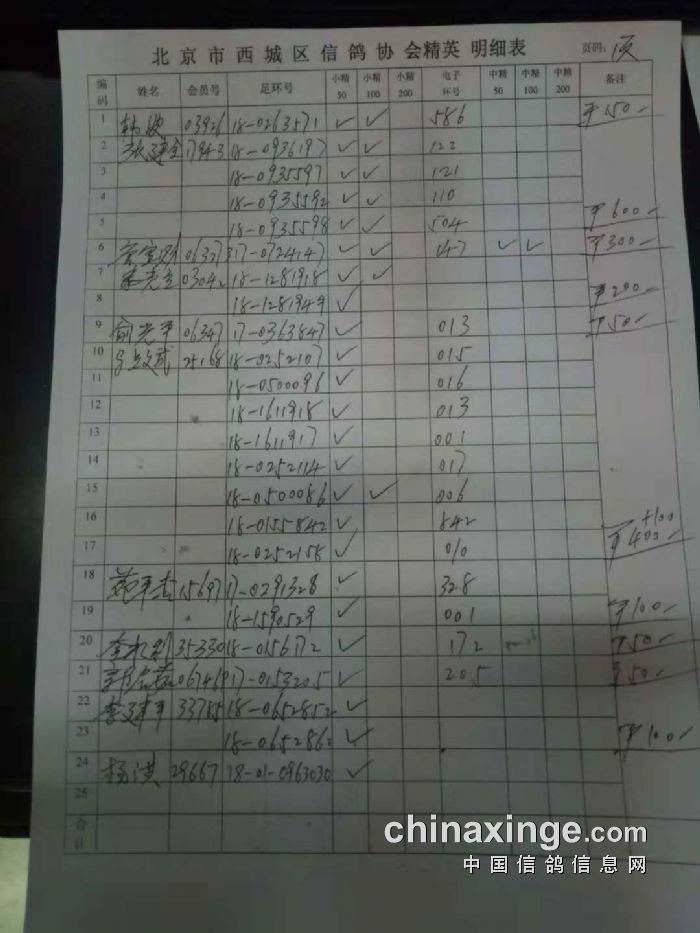 北京市西城区信鸽协会精英明细表 页码：
编码 姓名 会员号 足环号 小精50 小精100 小精200 电子环号 中精50 中精100 中精200 备注
1 03926 18-0263571 ✓ ✓ 586 ¥150-
2 17943 18-0936197 ✓ ✓ 122
3 18-0935597 ✓ ✓ 121
4 18-0935592 ✓ ✓ 110
5 18-0935598 ✓ ✓ 504 ¥600-
6 ✓ ✓ 147 ✓ ✓ ¥300-
7 18-1281918 ✓ ✓
8 18-1281949 ✓ ¥200-
9 俞光平 06347 17-0363847 ✓ 013 ¥50-
10 25168 18-0252107 ✓ 015
11 18-0500096 ✓ 016
12 18-1611918 ✓ 013
13 18-1611917 ✓ 001
14 18-0252114 ✓ 017
15 18-0500086 ✓ ✓ 006
16 18-0155842 ✓ 842 +100
17 18-0252158 ✓ 010 ¥400-
18 15697 17-0291328 ✓ 328
19 18-1590529 ✓ 001 ¥100-
20 35330 18-0156172 ✓ 172 ¥50-
21 17-0153205 ✓ 205 ¥50-
22 李建平 33785 18-0652852 ✓
23 18-0652862 ✓ ¥100-
24 杨洪 29667 18-01-0963030 ✓
25
合计
chinaxinge.com
中国信鸽信息网